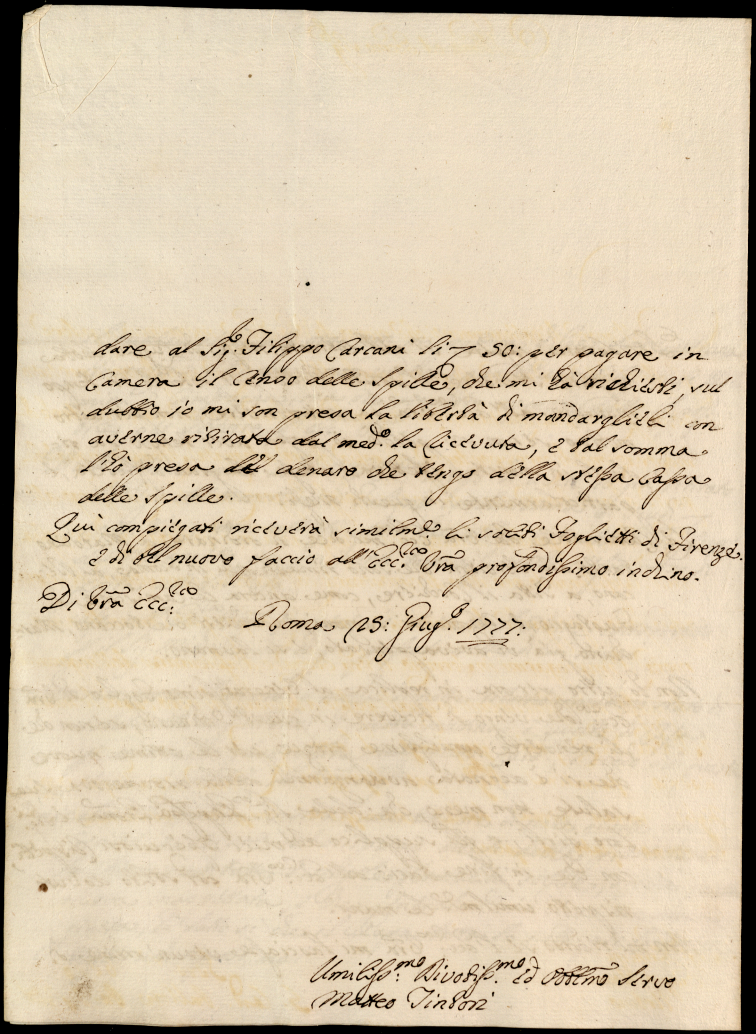 dare al Sig.r Filippo Carcani li 7 50: per pagare in
Camera il Censo delle Spille, che mi hà richiesti, sul
dubbio io mi son presa la libertà di mandarglieli con
averne ritirata dal med.o la ricevuta, e tal somma
l'hò presa del denaro che tengo della stessa Cassa
delle Spille.
Quì compiegati riceverà similm.e li soliti Foglietti di Firenze.
e di bel nuovo faccio all'Ecc.ico Vrã profondissimo inchino.
Di Vrã Ecc.ico
Roma 25: Giug.o 1777:
Umiliss.mo Divotiss.mo ed Obblmo Servo
Matteo Tintori